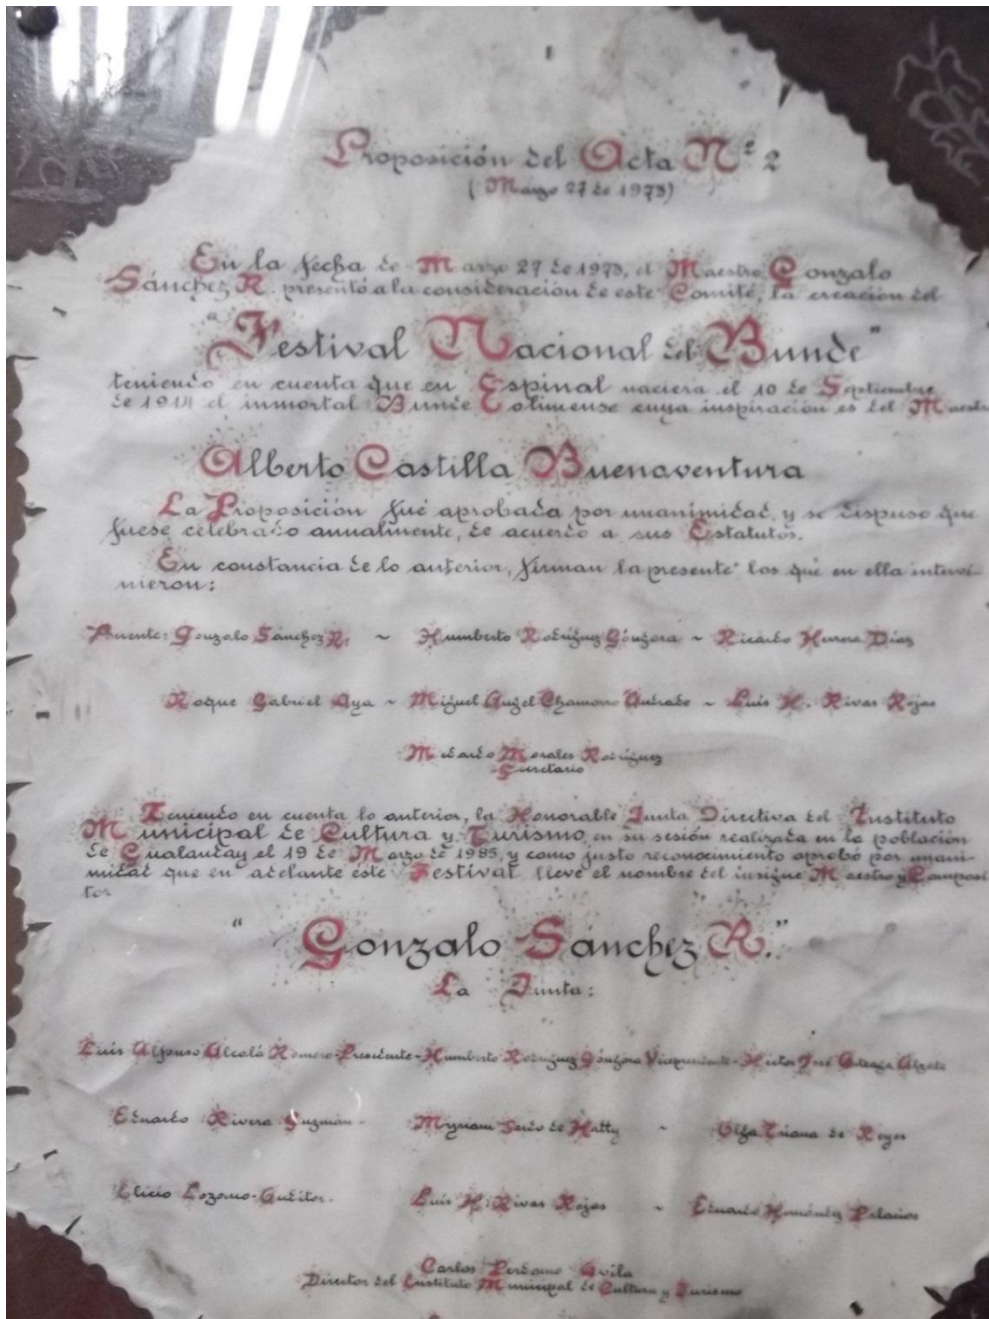 Proposición del Acta Nº 2
(Marzo 27 de 1973)
En la fecha de Marzo 27 de 1973, el Maestro Gonzalo
Sánchez R. presentó a la consideración de este Comité, la creación del
"Festival Nacional del Bunde"
teniendo en cuenta que en Espinal naciera el 10 de Septiembre
de 1914 el inmortal Bunde Tolimense cuya inspiración es del Maestro
Alberto Castilla Buenaventura
La Proposición fué aprobada por unanimidad, y se dispuso que
fuese celebrado anualmente, de acuerdo a sus Estatutos.
En constancia de lo anterior, firman la presente los que en ella intervi-
nieron:
Ponente: Gonzalo Sánchez R. ~ Humberto Rodríguez Góngora ~ Ricardo Herrera Díaz
Roque Gabriel Aya ~ Miguel Angel Chamorro Andrade ~ Luis H. Rivas Rojas
Medardo Morales Rodríguez
Secretario
Teniendo en cuenta lo anterior, la Honorable Junta Directiva del Instituto
Municipal de Cultura y Turismo, en su sesión realizada en la población
de Gualanday el 19 de Marzo de 1985, y como justo reconocimiento aprobó por unani-
midad que en adelante este Festival lleve el nombre del insigne Maestro y Composi
tor
"Gonzalo Sánchez R."
La Junta:
Luis Alfonso Alcalá Romero-Presidente-Humberto Rodríguez Góngora Vicepresidente-Hector José
Eduardo Rivera Guzmán - Myriam de Hatty ~ Olga Triana de Reyes
Elicio Lozano-Auditor. Luis H. Rivas Rojas ~ Eduardo Palacios
Carlos Perdomo Avila
Director del Instituto Municipal de Cultura y Turismo